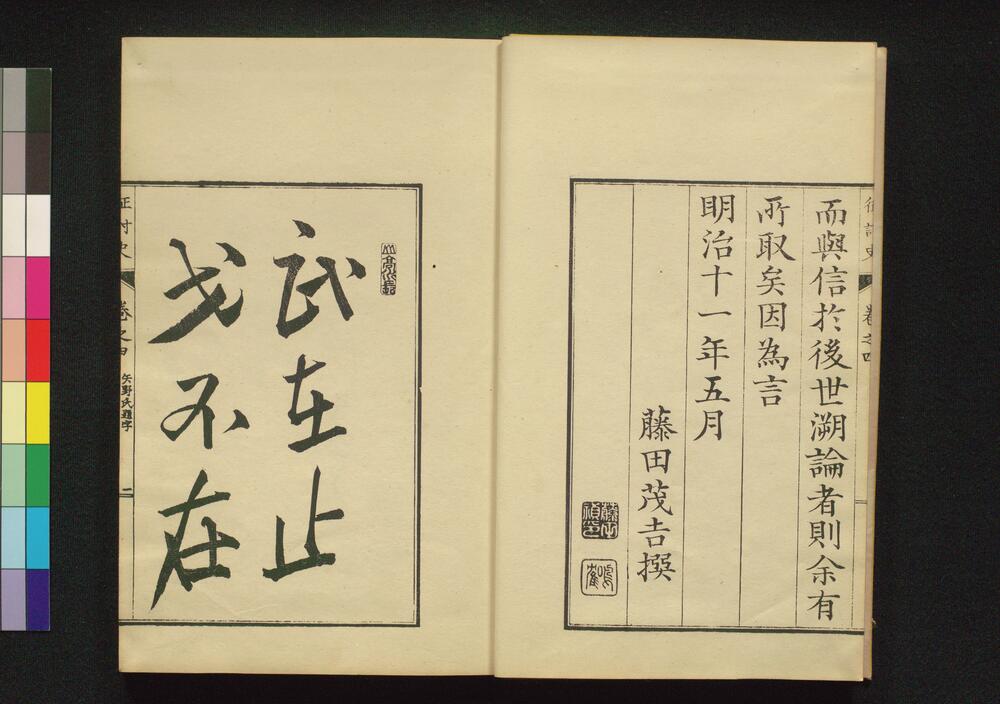 而與信於後世溯論者則余有
所取矣因為言
明治十一年五月
藤田茂吉撰
卷之四
武在止
戈不在
卷之四
矢野氏題字
二